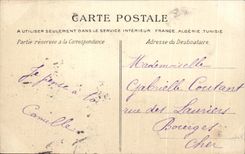 CARTE POSTALE
A UTILISER SEULEMENT DANS LE SERVICE INTERIEUR FRANCE, ALGERIE TUNISIE
Partie réservée à la Correspondance
Adresse du Destinataire
Je pense à toi
Camille
Mademoiselle
Gabrielle Coutant
rue des Lauriers
Bourges
Cher